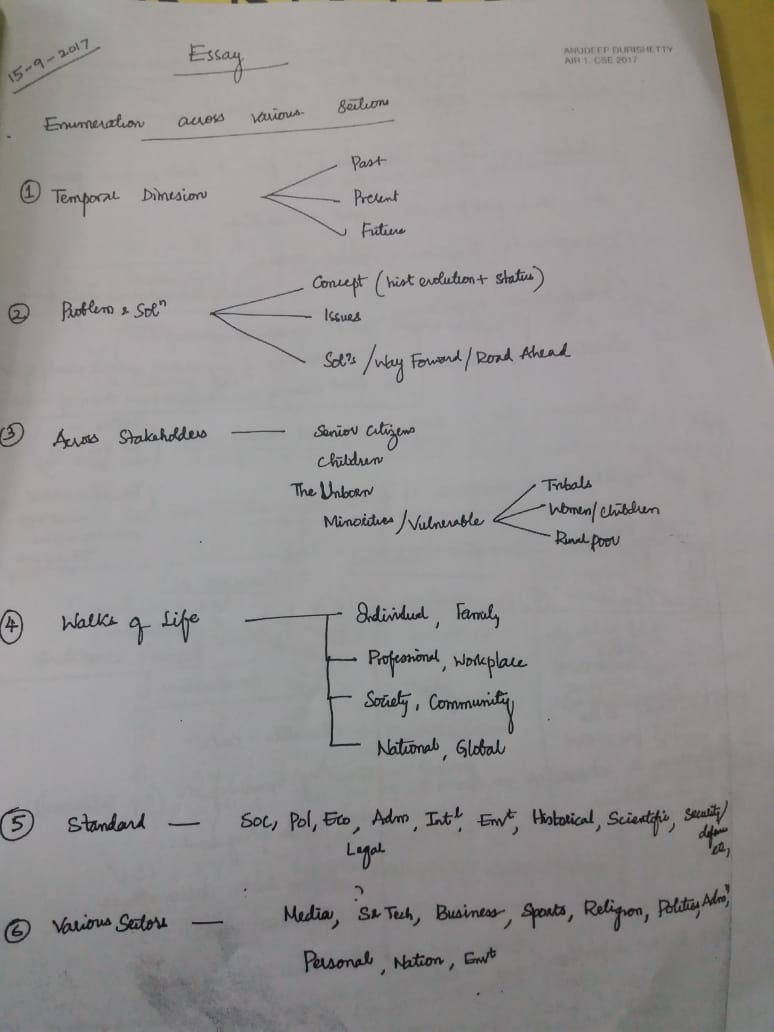 15-9-2017
Essay
ANUDEEP DURISHETTY
AIR 1, CSE 2017
Enumeration across various sections
① Temporal Dimesion
Past
Present
Future
② Problem & Solⁿ
Concept (hist evolution + status)
Issues
Solⁿs / Way Forward / Road Ahead
③ Across Stakeholders —
Senior citizens
Children
The Unborn
Minorities / Vulnerable
Tribals
Women/children
Rural poor
④ Walks of Life
Individual, Family
Professional, workplace
Society, Community
National, Global
⑤ Standard — Soc, Pol, Eco, Adm, Intˡ, Envt, Historical, Scientific, Security/
Legal
⑥ Various Sectors — Media, S & Tech, Business, Sports, Religion, Politics, Admⁿ,
Personal, Nation, Envt